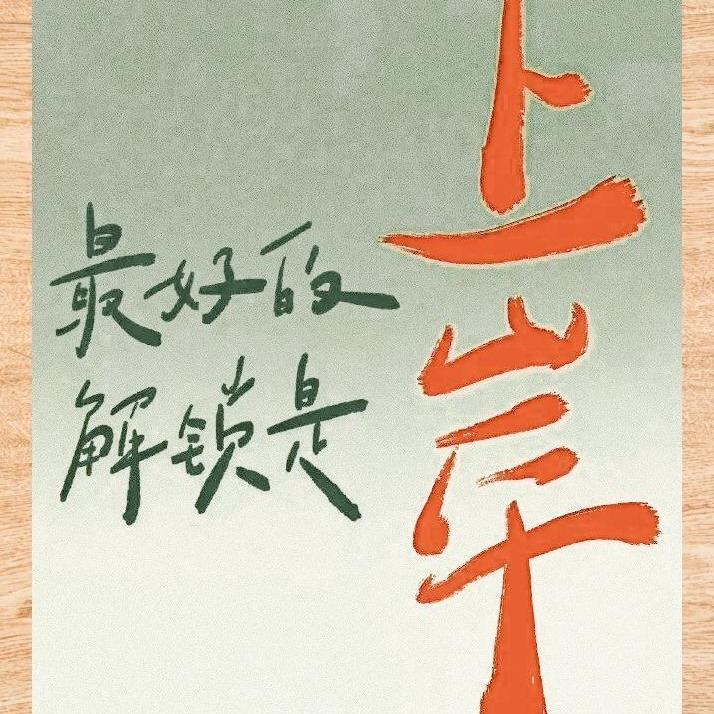 最好的
解锁是
上岸